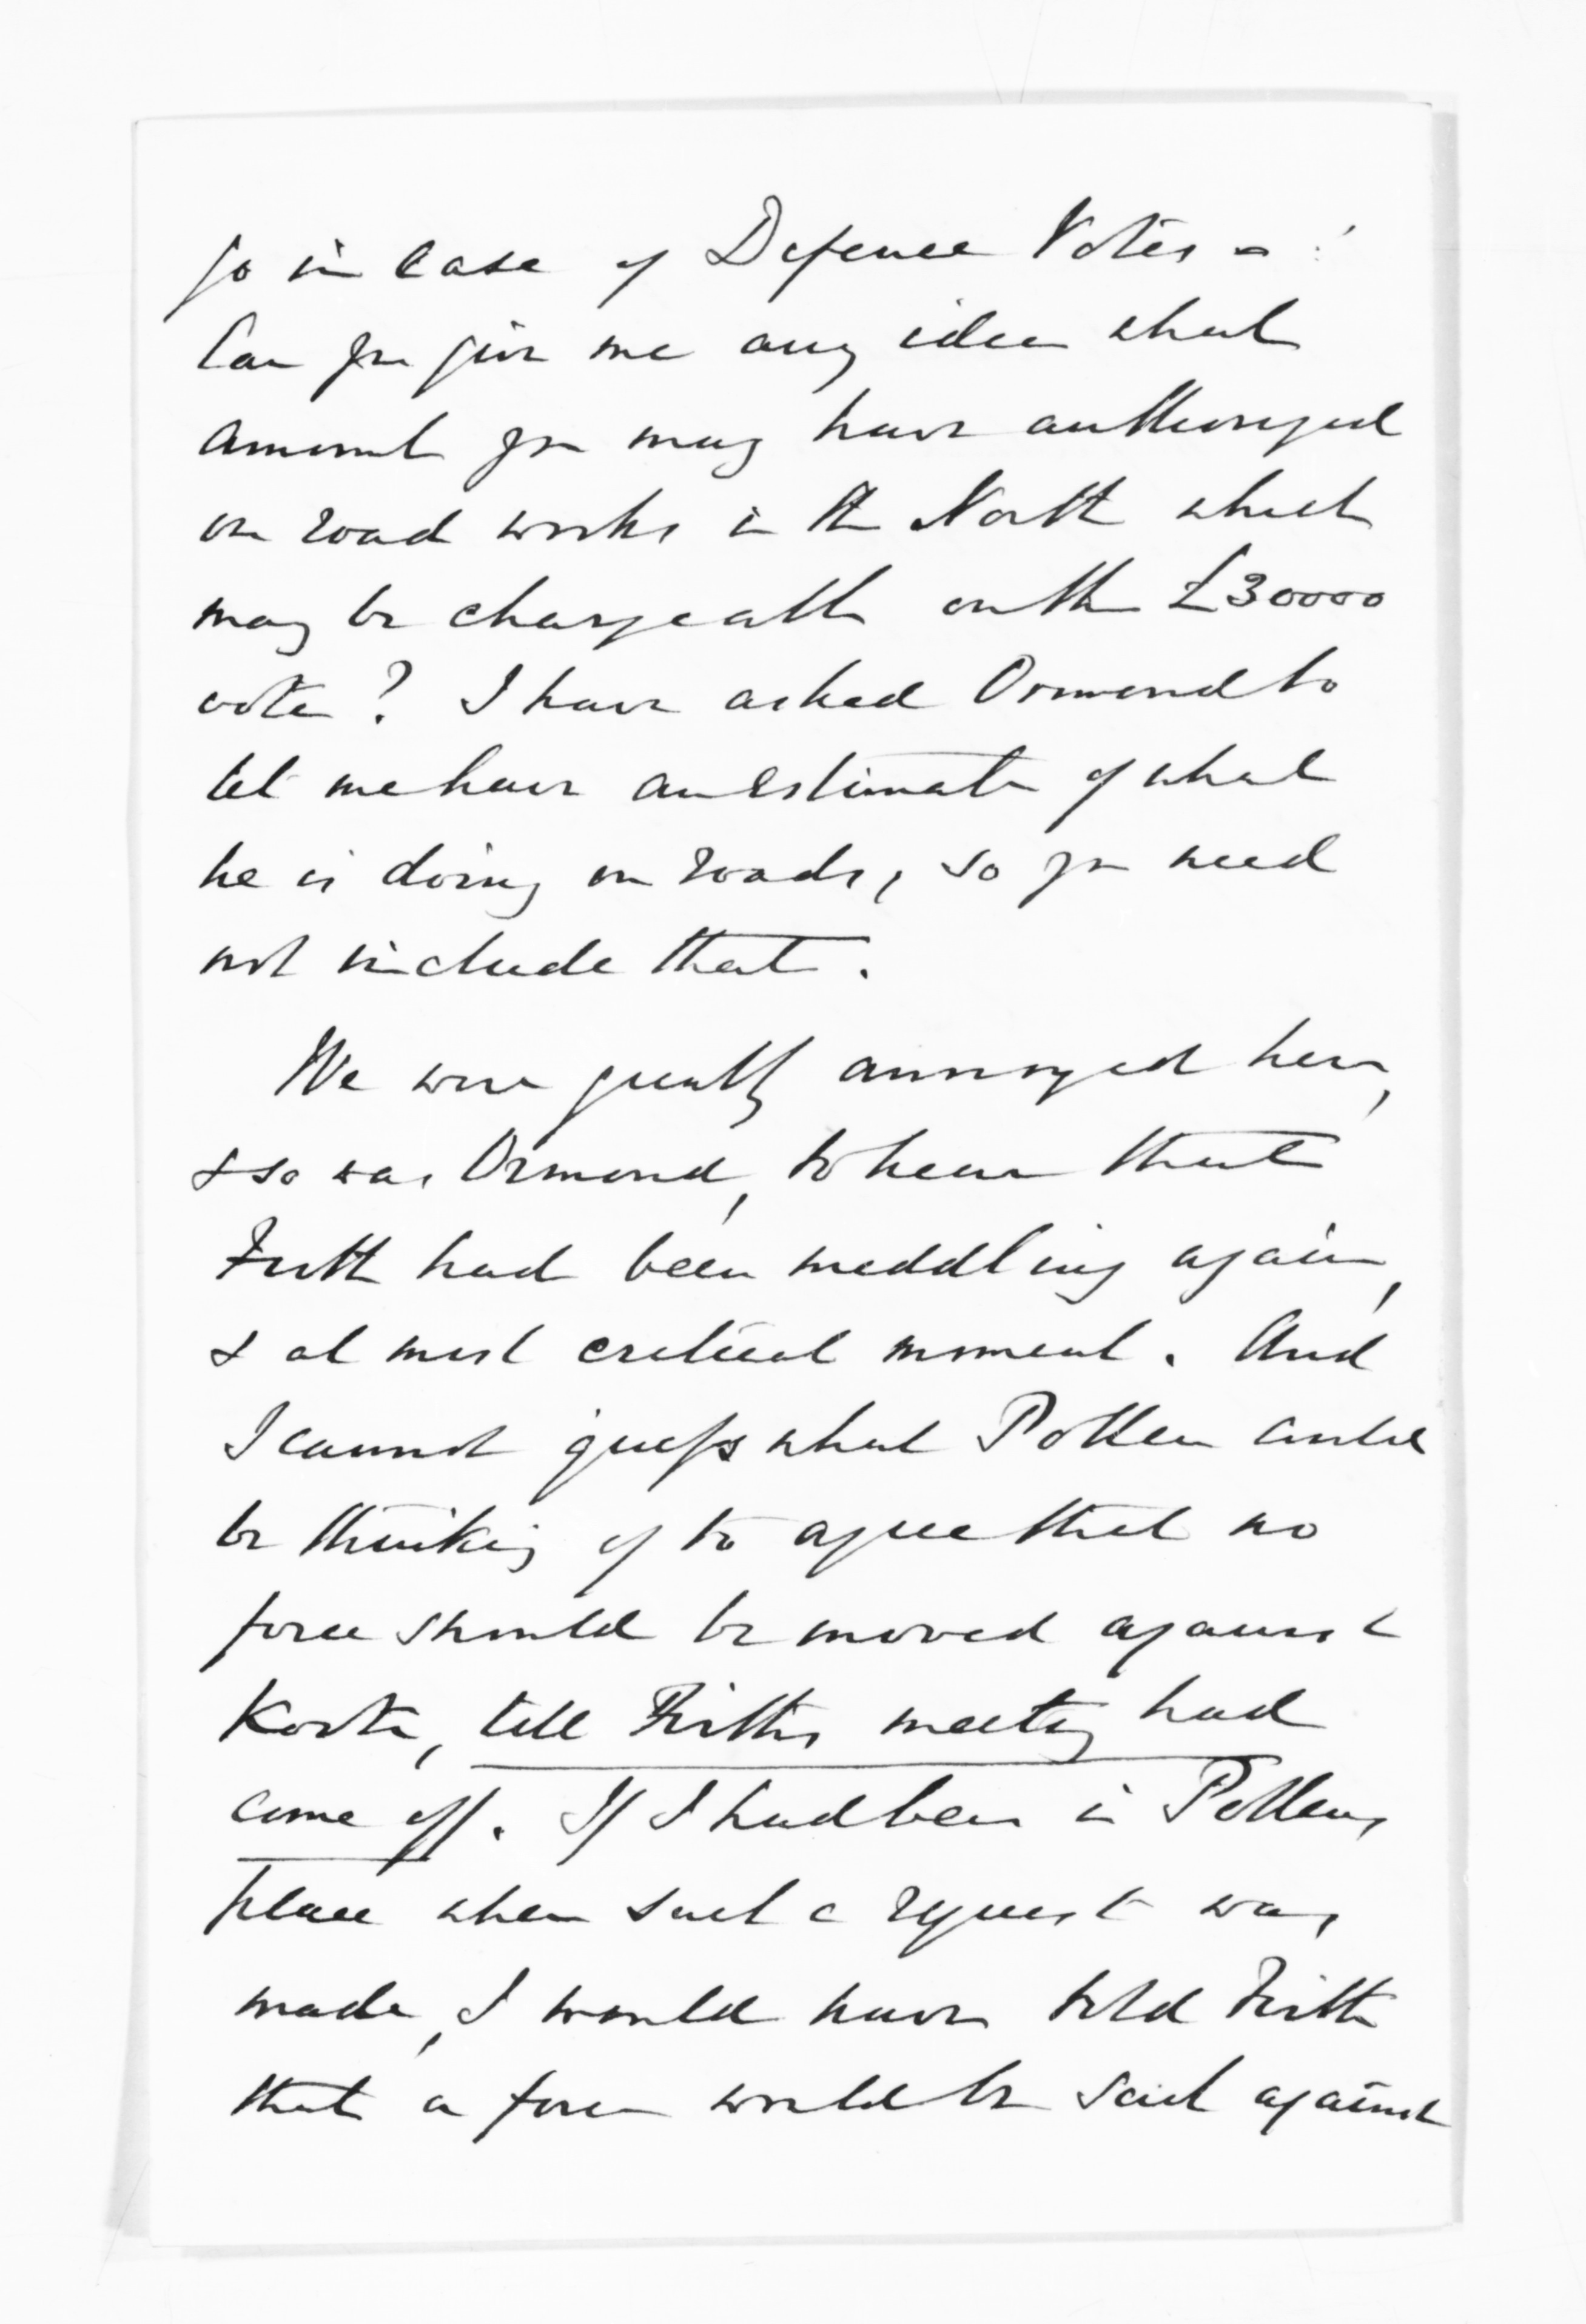 go in Case of Defence Votes -
Can you give me any idea what
amount you may have authorized
on road works in the North which
may be chargeable on the £30000
vote? I have asked Ormond to
let me have an Estimate of what
he is doing on roads, so you need
not include that.
We were greatly annoyed here,
& so was Ormond, to hear that
Firth had been meddling again,
& at most critical moment. And
I cannot guess what Pollen could
be thinking of to agree that no
force should be moved against
Kooti, till Firths meeting had
come off. If I had been in Pollens
place when such a request was
made, I would have told Firth
that a force would be sent against